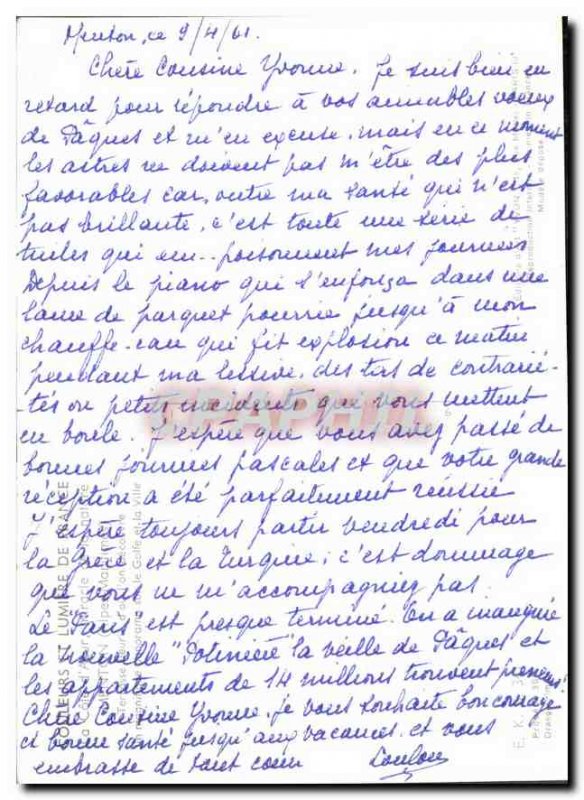 Menton, ce 9/4/61.
Chère Cousine Yvonne, Je suis bien en
retard pour répondre à vos aimables voeux
de Pâques et m'en excuse, mais en ce moment
les astres ne doivent pas m'être des plus
favorables car, outre ma santé qui n'est
pas brillante, c'est toute une série de
tuiles qui em..poisonnent mes journées
Depuis le piano qui s'enfonça dans une
lame de parquet pourrie jusqu'à mon
chauffe-eau qui fit explosion ce matin
pendant ma lessive, des tas de contrarié-
-tés ou petits incidents qui vous mettent
en boule. J'espère que vous avez passé de
bonnes journées pascales et que votre grande
réception a été parfaitement réussie
J'espère toujours partir vendredi pour
la Grèce et la Turquie; c'est dommage
que vous ne m'accompagniez pas.
Le "Paris" est presque terminé. On a
la nouvelle "Polinière" la veille de Pâques et
les appartements de 14 millions trouvent preneurs!
Chère Cousine Yvonne, je vous souhaite bon courage
et bonne santé jusqu'aux vacances, et vous
embrasse de tout coeur Loulou
COULEURS ET LUMIÈRE DE FRANCE